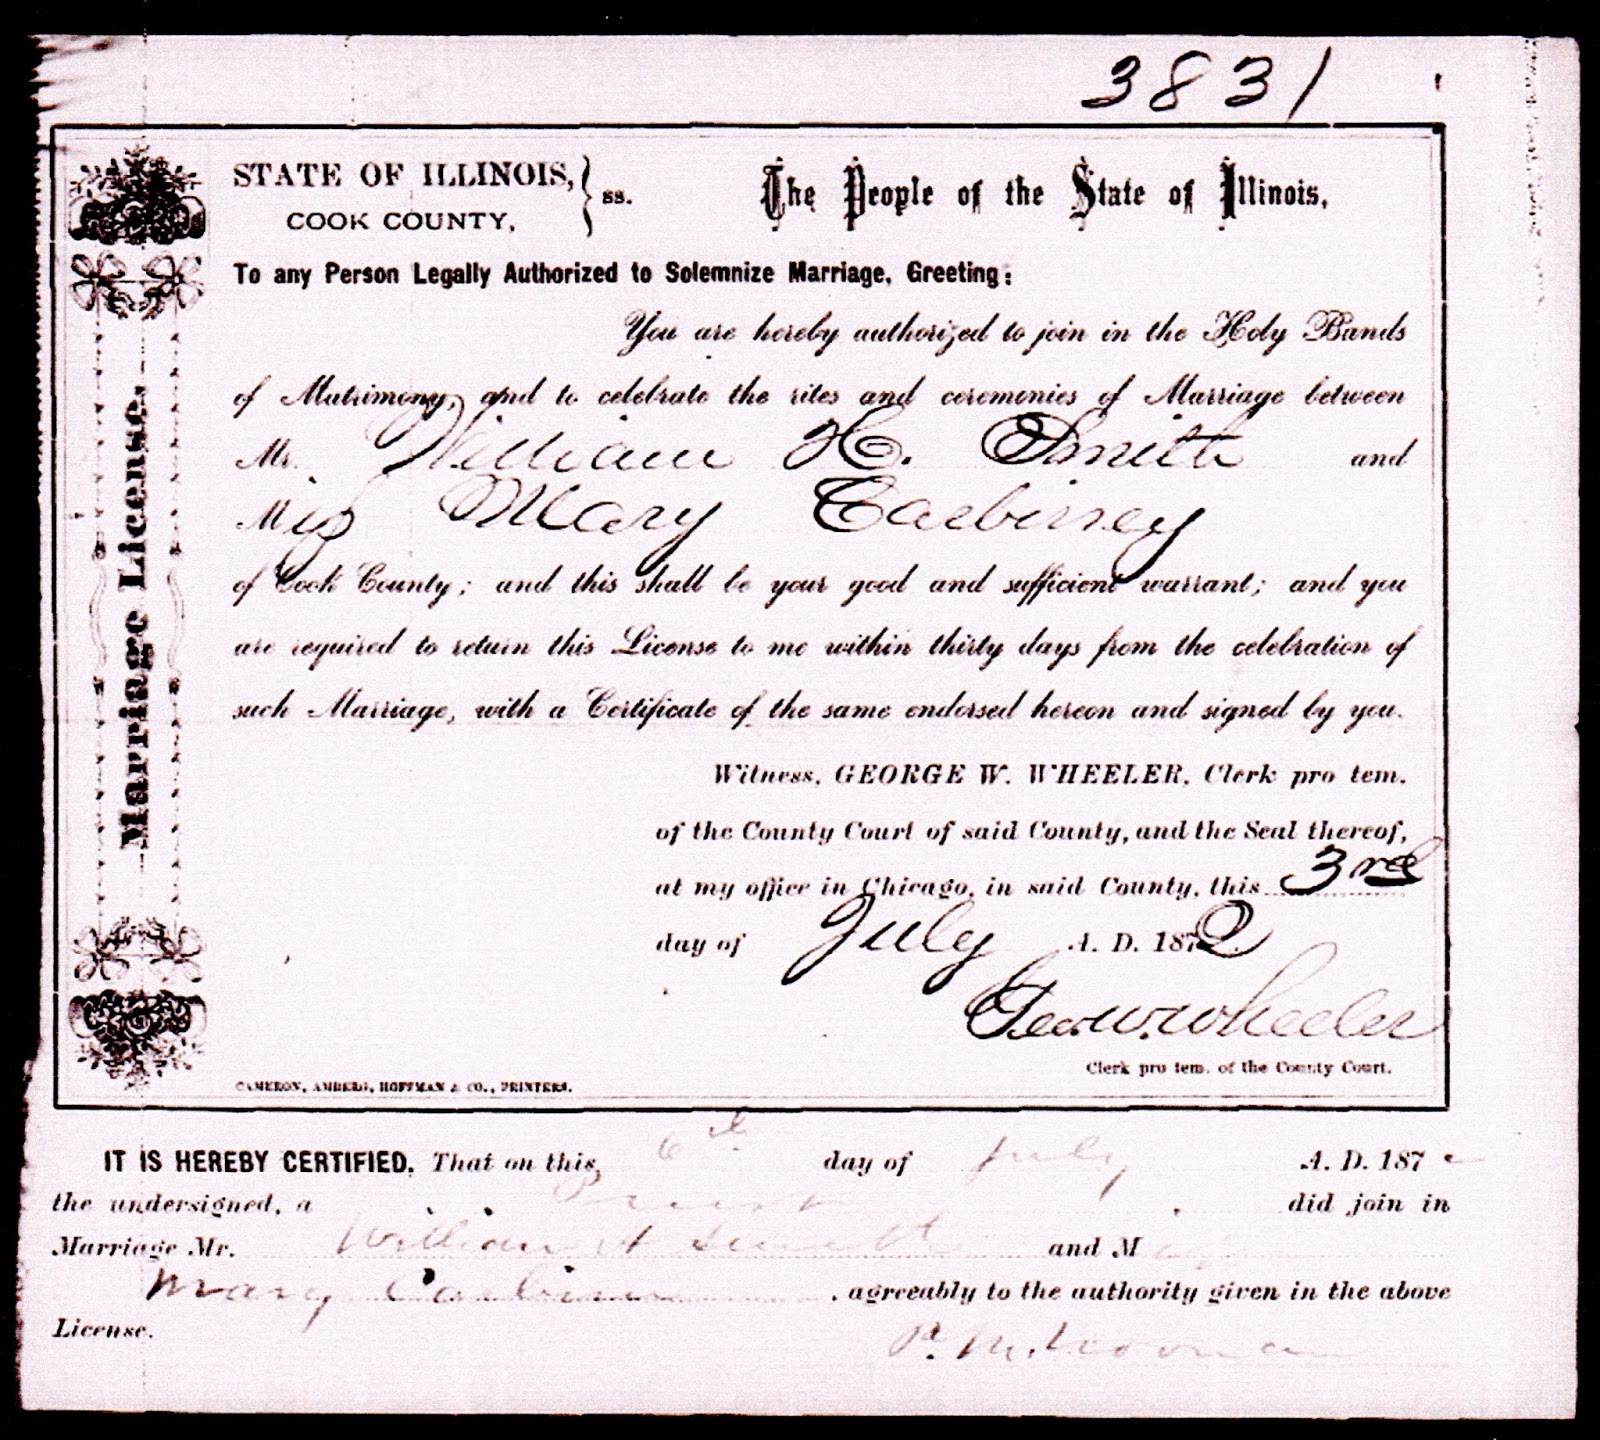 3831
STATE OF ILLINOIS, } ss. The People of the State of Illinois,
COOK COUNTY,
To any Person Legally Authorized to Solemnize Marriage, Greeting:
You are hereby authorized to join in the Holy Bands
of Matrimony, and to celebrate the rites and ceremonies of Marriage between
Mr. William H. Smith and
Miss Mary Carbiney
of Cook County; and this shall be your good and sufficient warrant; and you
are required to return this License to me within thirty days from the celebration of
such Marriage, with a Certificate of the same endorsed hereon and signed by you.
Witness, GEORGE W. WHEELER, Clerk pro tem.
of the County Court of said County, and the Seal thereof,
at my office in Chicago, in said County, this 3rd
day of July A. D. 1872.
Geo. W. Wheeler
Clerk pro tem. of the County Court.
CAMERON, AMBERG, HOFFMAN & CO., PRINTERS.
Marriage License.
IT IS HEREBY CERTIFIED, That on this, 6th day of July A. D. 187
the undersigned, a Priest did join in
Marriage Mr. William H Smith and M
Mary , agreeably to the authority given in the above
License.